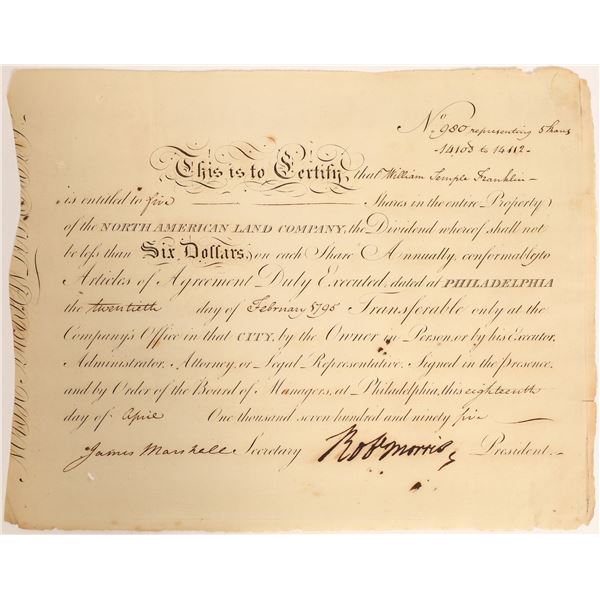 No 980 representing 5 Shares
14108 to 14112
This is to Certify, that William Temple Franklin
is entitled to five Shares in the entire Property
of the NORTH AMERICAN LAND COMPANY, the Dividend whereof shall not
be less than Six Dollars, on each Share Annually, conformably to
Articles of Agreement Duly Executed, dated at PHILADELPHIA
the twentieth day of February 1795 Transferable only at the
Company's Office in that CITY, by the Owner in Person, or by his Executor,
Administrator, Attorney, or Legal Representative. Signed in the presence,
and by Order of the Board of Managers, at Philadelphia, this eighteenth
day of April One thousand seven hundred and ninety five
James Marshall Secretary Rob Morris President